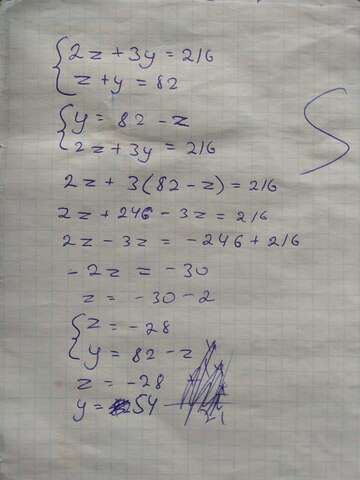 {2z + 3y = 216
z + y = 82
{y = 82 - z
2z + 3y = 216
2z + 3(82 - z) = 216
2z + 246 - 3z = 216
2z - 3z = -246 + 216
-2z = -30
z = -30 - 2
{z = -28
y = 82 - z
z = -28
y = 54